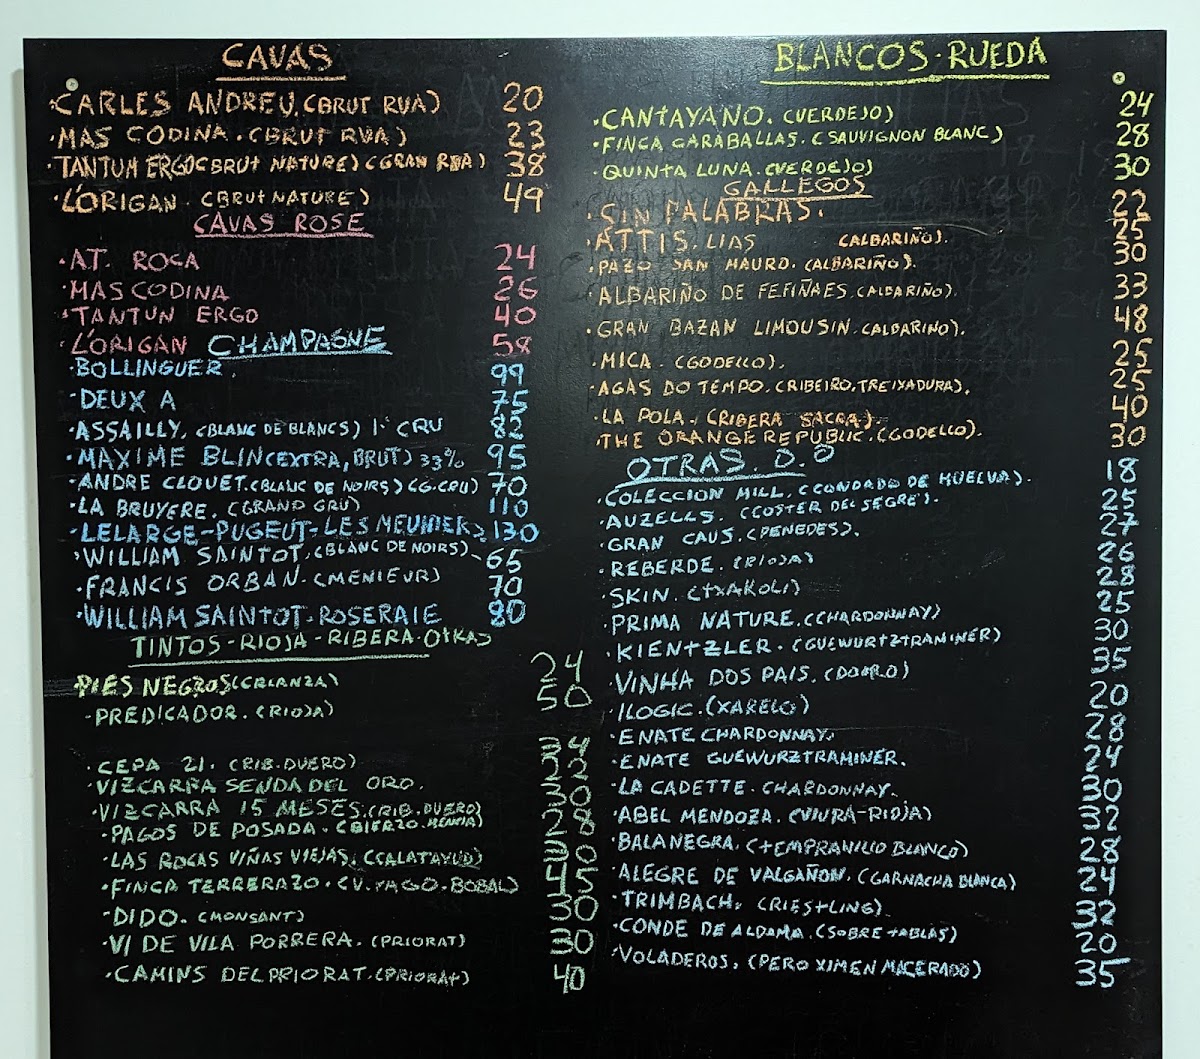 CAVAS
·CARLES ANDREU. (BRUT RVA) 20
·MAS CODINA. (BRUT RVA) 23
·TANTUM ERGO (BRUT NATURE) (GRAN RVA) 38
·L'ORIGAN. (BRUT NATURE) 49
CAVAS ROSE
·AT. ROCA 24
·MAS CODINA 26
·TANTUN ERGO 40
·L'ORIGAN 58
CHAMPAGNE
·BOLLINGUER. 99
·DEUX A 75
·ASSAILLY. (BLANC DE BLANCS) 1º CRU 82
·MAXIME BLIN (EXTRA, BRUT) 33% 95
·ANDRE CLOUET. (BLANC DE NOIRS) (G.CRU) 70
·LA BRUYERE. (GRAND CRU) 110
·LELARGE-PUGEUT-LES MEUNIERS 130
·WILLIAM SAINTOT. (BLANC DE NOIRS). 65
·FRANCIS ORBAN. (MENIEUR) 70
·WILLIAM SAINTOT-ROSERAIE 80
TINTOS-RIOJA-RIBERA-OTRAS
·PIES NEGROS (CRIANZA) 24
·PREDICADOR. (RIOJA) 50
·CEPA 21. (RIB.DUERO) 34
·VIZCARRA SENDA DEL ORO. 22
·VIZCARRA 15 MESES. (RIB.DUERO) 30
·PAGOS DE POSADA. (BIERZO. MENCIA) 28
·LAS ROCAS VIÑAS VIEJAS. (CALATAYUD) 30
·FINCA TERRERAZO. (V.PAGO-BOBAL) 45
·DIDO. (MONSANT) 30
·VI DE VILA PORRERA. (PRIORAT) 30
·CAMINS DEL PRIORAT. (PRIORAT) 40
BLANCOS-RUEDA
·CANTAYANO. (VERDEJO) 24
·FINCA CARABALLAS. (SAUVIGNON BLANC) 28
·QUINTA LUNA. (VERDEJO) 30
GALLEGOS
·SIN PALABRAS. 22
·ATTIS. LIAS (ALBARIÑO). 25
·PAZO SAN MAURO. (ALBARIÑO). 30
·ALBARIÑO DE FEFIÑAES. (ALBARIÑO). 33
·GRAN BAZAN LIMOUSIN. (ALBARINO). 48
·MICA. (GODELLO). 25
·AGAS DO TEMPO. (RIBEIRO, TREIXADURA). 25
·LA POLA. (RIBERA SACRA). 40
·THE ORANGE REPUBLIC. (GODELLO). 30
OTRAS. D.O
·COLECCION MILL. (CONDADO DE HUELVA). 18
·AUZELLS. (COSTER DEL SEGRE). 25
·GRAN CAUS. (PENEDES). 27
·REBERDE. (RIOJA) 26
·SKIN. (TXAKOLI) 28
·PRIMA NATURE. (CHARDONNAY) 25
·KIENTZLER. (GUEWURTZTRAMINER) 30
·VINHA DOS PAIS. (DOURO) 35
·ILOGIC. (XARELO) 20
·ENATE CHARDONNAY. 28
·ENATE GUEWURZTRAMINER. 24
·LA CADETTE. CHARDONNAY. 30
·ABEL MENDOZA. (VIURA-RIOJA) 32
·BALANEGRA. (TEMPRANILLO BLANCO) 28
·ALEGRE DE VALGAÑON. (GARNACHA BLANCA) 24
·TRIMBACH. (RIESTLING). 32
·CONDE DE ALDAMA. (SOBRE TABLAS) 20
·VOLADEROS. (PERO XIMEN MACERADO) 35